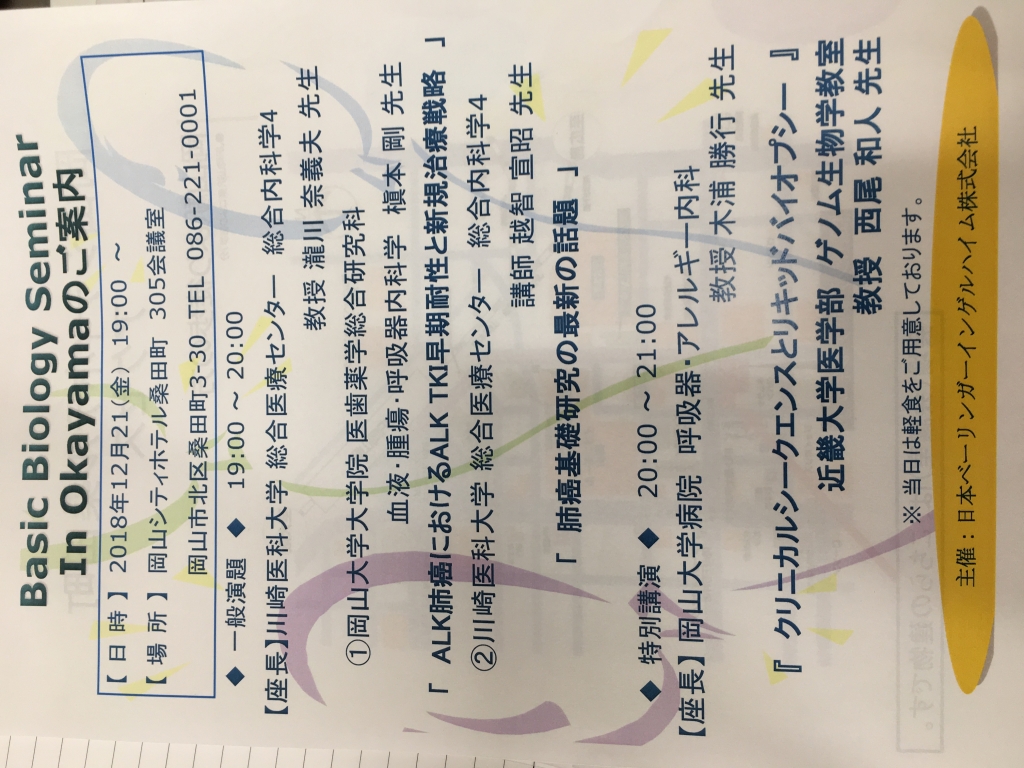 Basic Biology Seminar
In Okayamaのご案内
【 日 時 】 2018年12月21(金) 19:00 ～
【 場 所 】 岡山シティホテル桑田町 305会議室
岡山市北区桑田町3-30 TEL 086-221-0001
◆ 一般演題 ◆ 19:00 ～ 20:00
【座長】川崎医科大学 総合医療センター 総合内科学4
教授 瀧川 奈義夫 先生
①岡山大学大学院 医歯薬学総合研究科
血液・腫瘍・呼吸器内科学 槇本 剛 先生
「 ALK肺癌におけるALK TKI早期耐性と新規治療戦略 」
②川崎医科大学 総合医療センター 総合内科学4
講師 越智 宣昭 先生
「 肺癌基礎研究の最新の話題 」
◆ 特別講演 ◆ 20:00 ～ 21:00
【座長】岡山大学病院 呼吸器・アレルギー内科
教授 木浦 勝行 先生
『 クリニカルシークエンスとリキッドバイオプシー 』
近畿大学医学部 ゲノム生物学教室
教授 西尾 和人 先生
※ 当日は軽食をご用意しております。
主催：日本ベーリンガーインゲルハイム株式会社